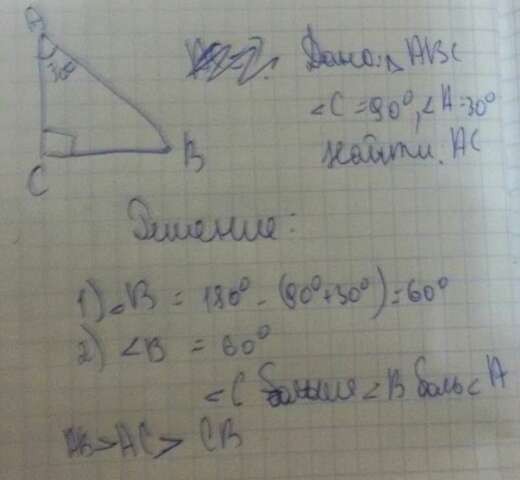 A
30°
C
B
Дано: △ ABC
∠C = 90°, ∠A = 30°
Найти: AC
Решение:
1) ∠B = 180° - (90° + 30°) = 60°
2) ∠B = 60°
∠C больше ∠B боль ∠A
AB > AC > CB